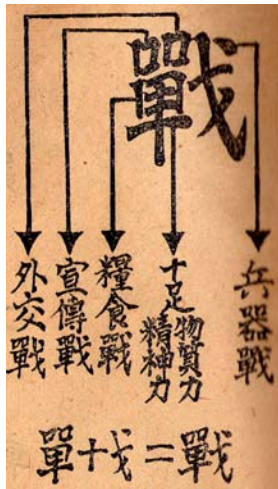 戰
兵器戰
十足物質力
精神力
糧食戰
宣傳戰
外交戰
單十戈=戰